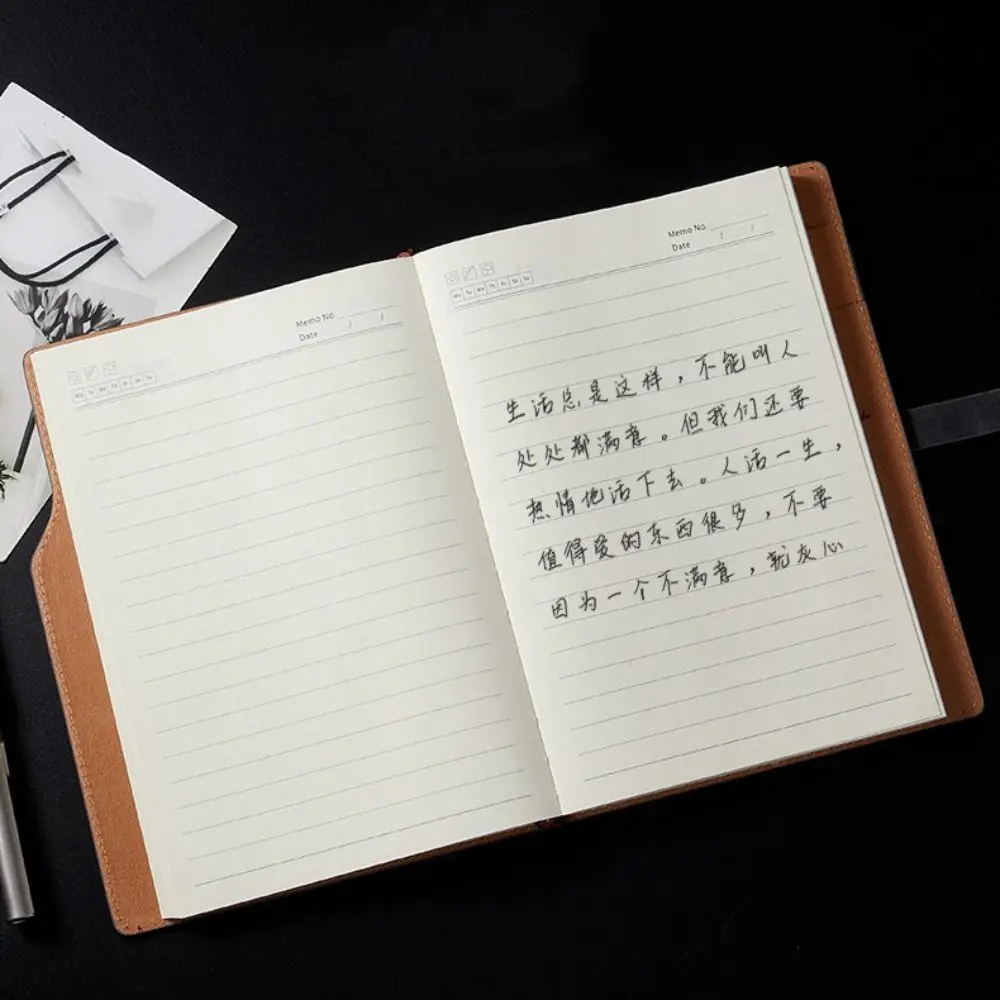 Memo No.
Date / /
Mo Tu We Th Fr Sa Su
Memo No.
Date / /
Mo Tu We Th Fr Sa Su
生活总是这样，不能叫人
处处都满意。但我们还要
热情地活下去。人活一生，
值得爱的东西很多，不要
因为一个不满意，就灰心